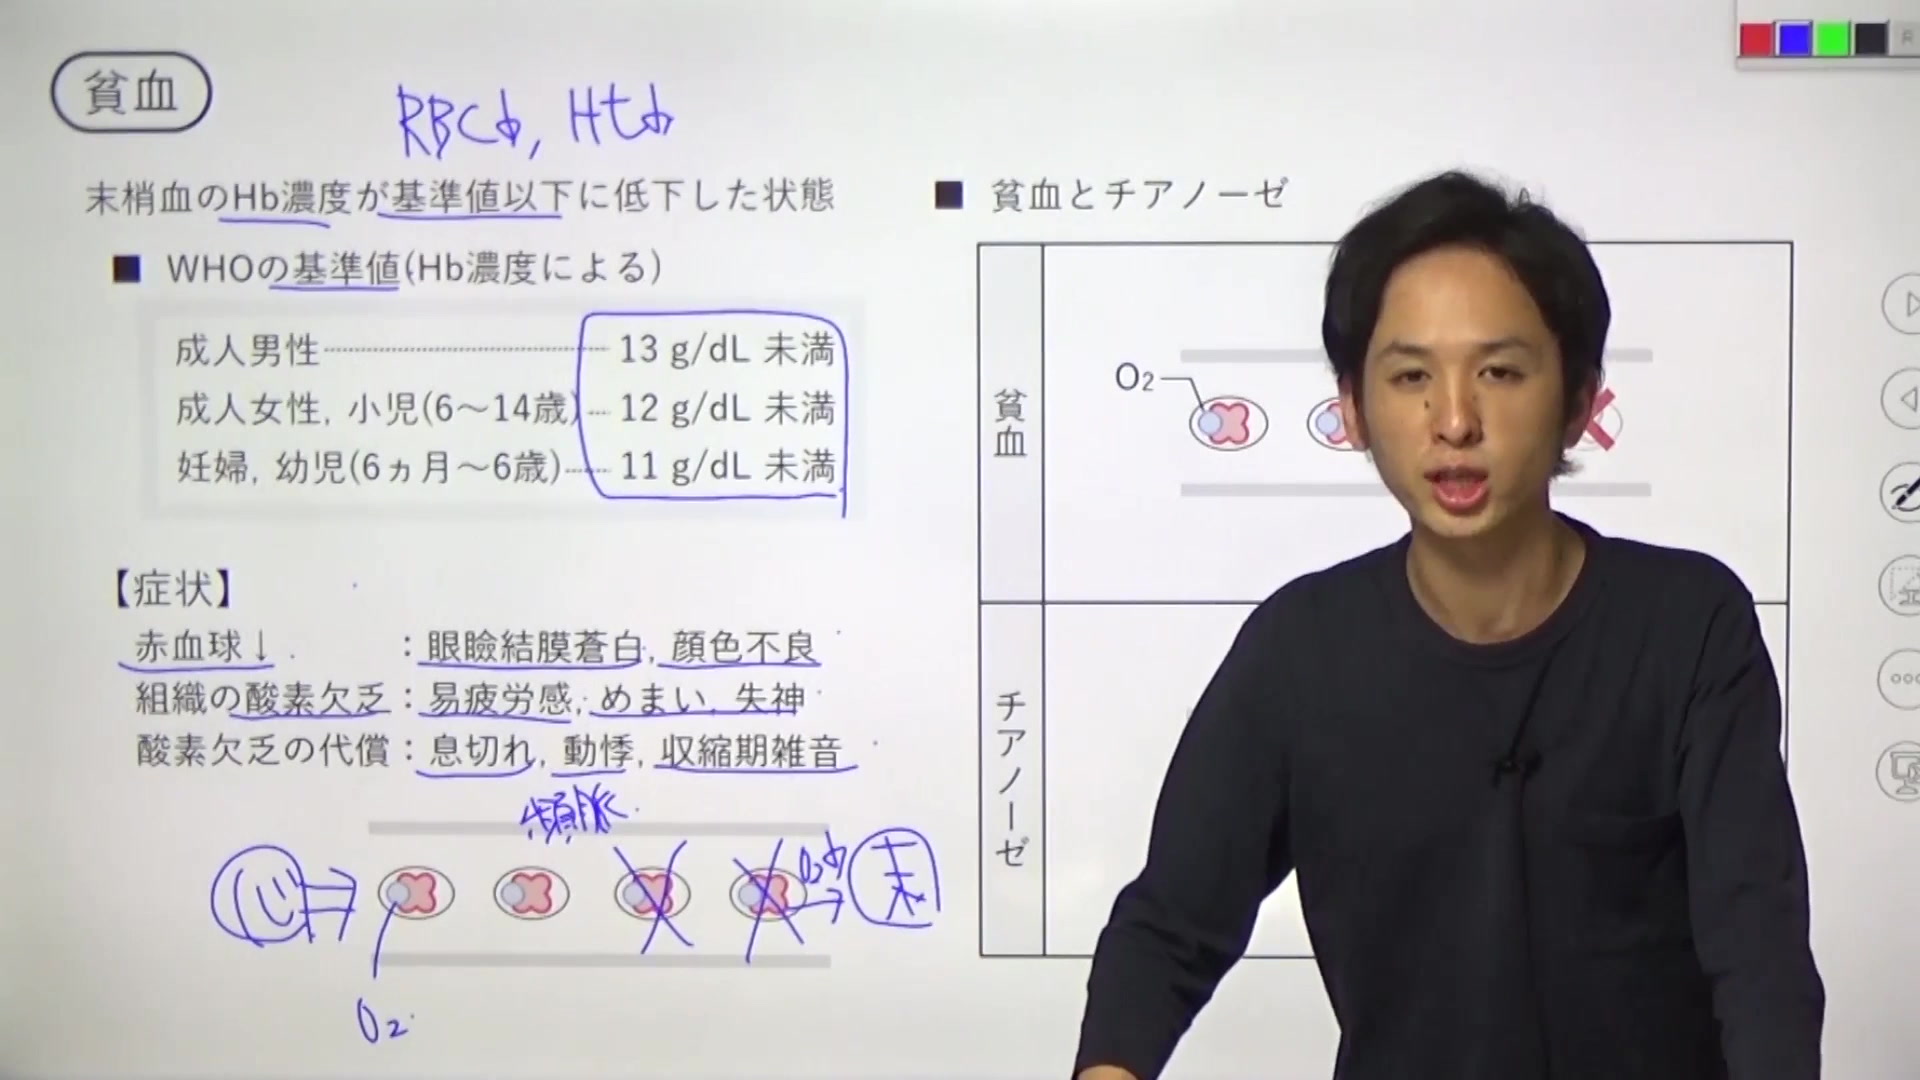 貧血
RBC↓, Ht↓
末梢血のHb濃度が基準値以下に低下した状態
■ WHOの基準値(Hb濃度による)
成人男性 13 g/dL 未満
成人女性, 小児(6〜14歳) 12 g/dL 未満
妊婦, 幼児(6ヵ月〜6歳) 11 g/dL 未満
【症状】
赤血球↓ : 眼瞼結膜蒼白, 顔色不良
組織の酸素欠乏 : 易疲労感, めまい, 失神
酸素欠乏の代償 : 息切れ, 動悸, 収縮期雑音
頻脈
心
O₂↓
末
O₂
■ 貧血とチアノーゼ
貧血
O₂
チアノーゼ
R